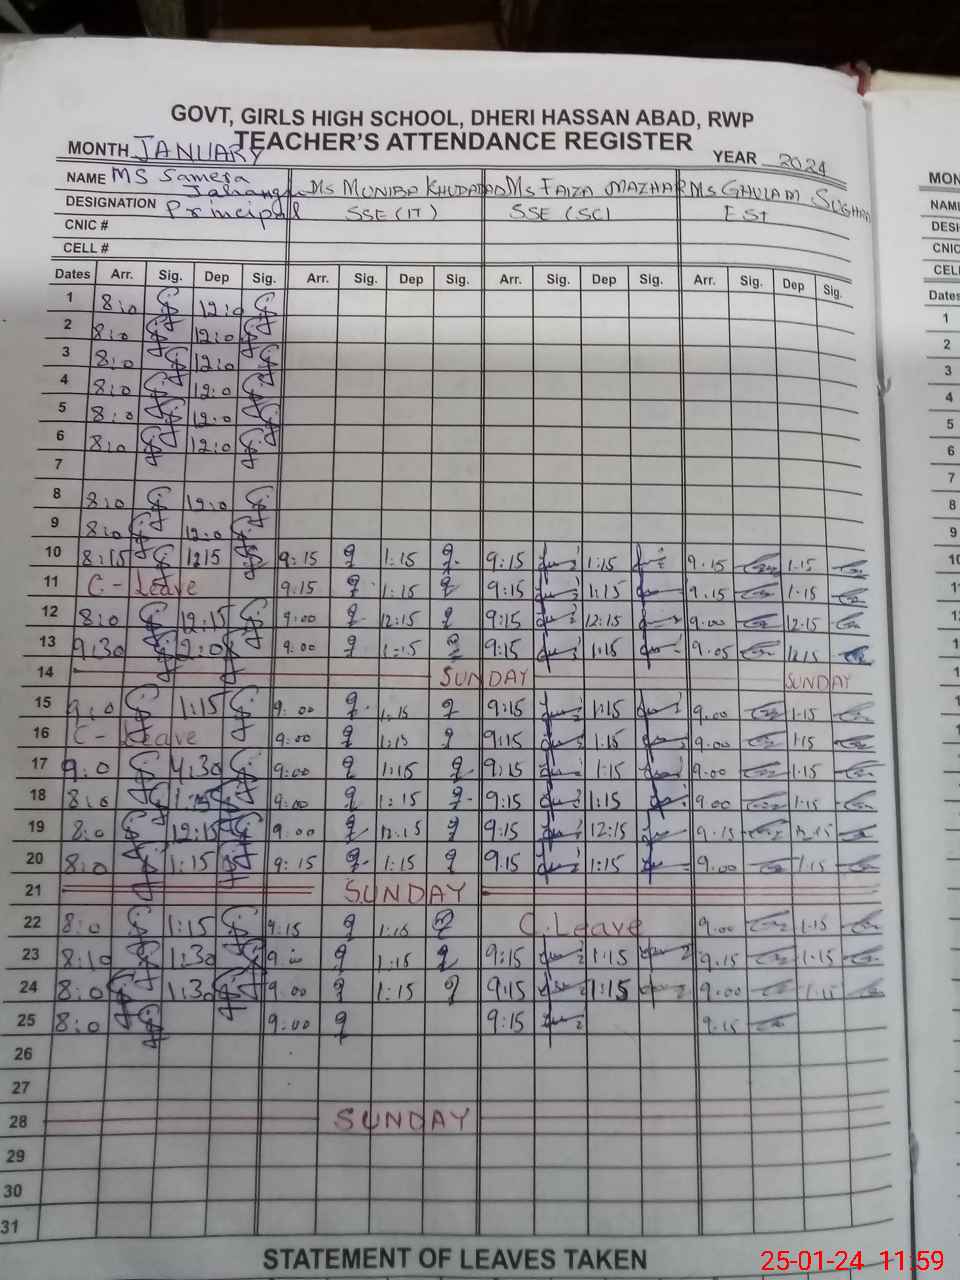 GOVT, GIRLS HIGH SCHOOL, DHERI HASSAN ABAD, RWP
TEACHER'S ATTENDANCE REGISTER
MONTH JANUARY YEAR 2024
NAME MS Samera Ms MUNIBA KHUDADAD Ms FAIZA MAZHAR Ms GHULAM
DESIGNATION Principal SSE (IT) SSE (SC) EST
CNIC #
CELL #
Dates Arr. Sig. Dep Sig. Arr. Sig. Dep Sig. Arr. Sig. Dep Sig. Arr. Sig. Dep Sig.
1 8:0 12:0
2 8:0 12:0
3 8:0 12:0
4 8:0 12:0
5 8:0 12:0
6 8:0 12:0
7
8 8:0 12:0
9 8:0 12:0
10 8:15 1:15 9:15 1:15 9:15 1:15 9.15 1.15
11 C-Leave 9:15 1:15 9:15 1:15 9.15 1.15
12 8:0 12:15 9:00 12:15 9:15 12:15 9.00 12.15
13 9:30 2:0 9:00 1:15 9:15 1:15 9.05 1.15
14 SUNDAY SUNDAY
15 9:0 1:15 9:00 1:15 9:15 1:15 9.00 1.15
16 C-Leave 9:00 1:15 9:15 1:15 9.00 1.15
17 9:0 4:30 9:00 1:15 9:15 1:15 9.00 1.15
18 8:0 1:15 9:00 1:15 9:15 1:15 9.00 1.15
19 8:0 12:15 9:00 12:15 9:15 12:15 9.15 12.15
20 8:0 1:15 9:15 1:15 9:15 1:15 9.00 1.15
21 SUNDAY
22 8:0 1:15 9:15 1:15 C.Leave 9.00 1.15
23 8:10 1:30 1:15 9:15 1:15 9.15 1.15
24 8:0 1:30 9:00 1:15 9:15 1:15 9.00 1.15
25 8:0 9:00 9:15 9.15
26
27
28 SUNDAY
29
30
31
STATEMENT OF LEAVES TAKEN
25-01-24 11:59
Dates
1
2
3
4
5
6
7
8
9